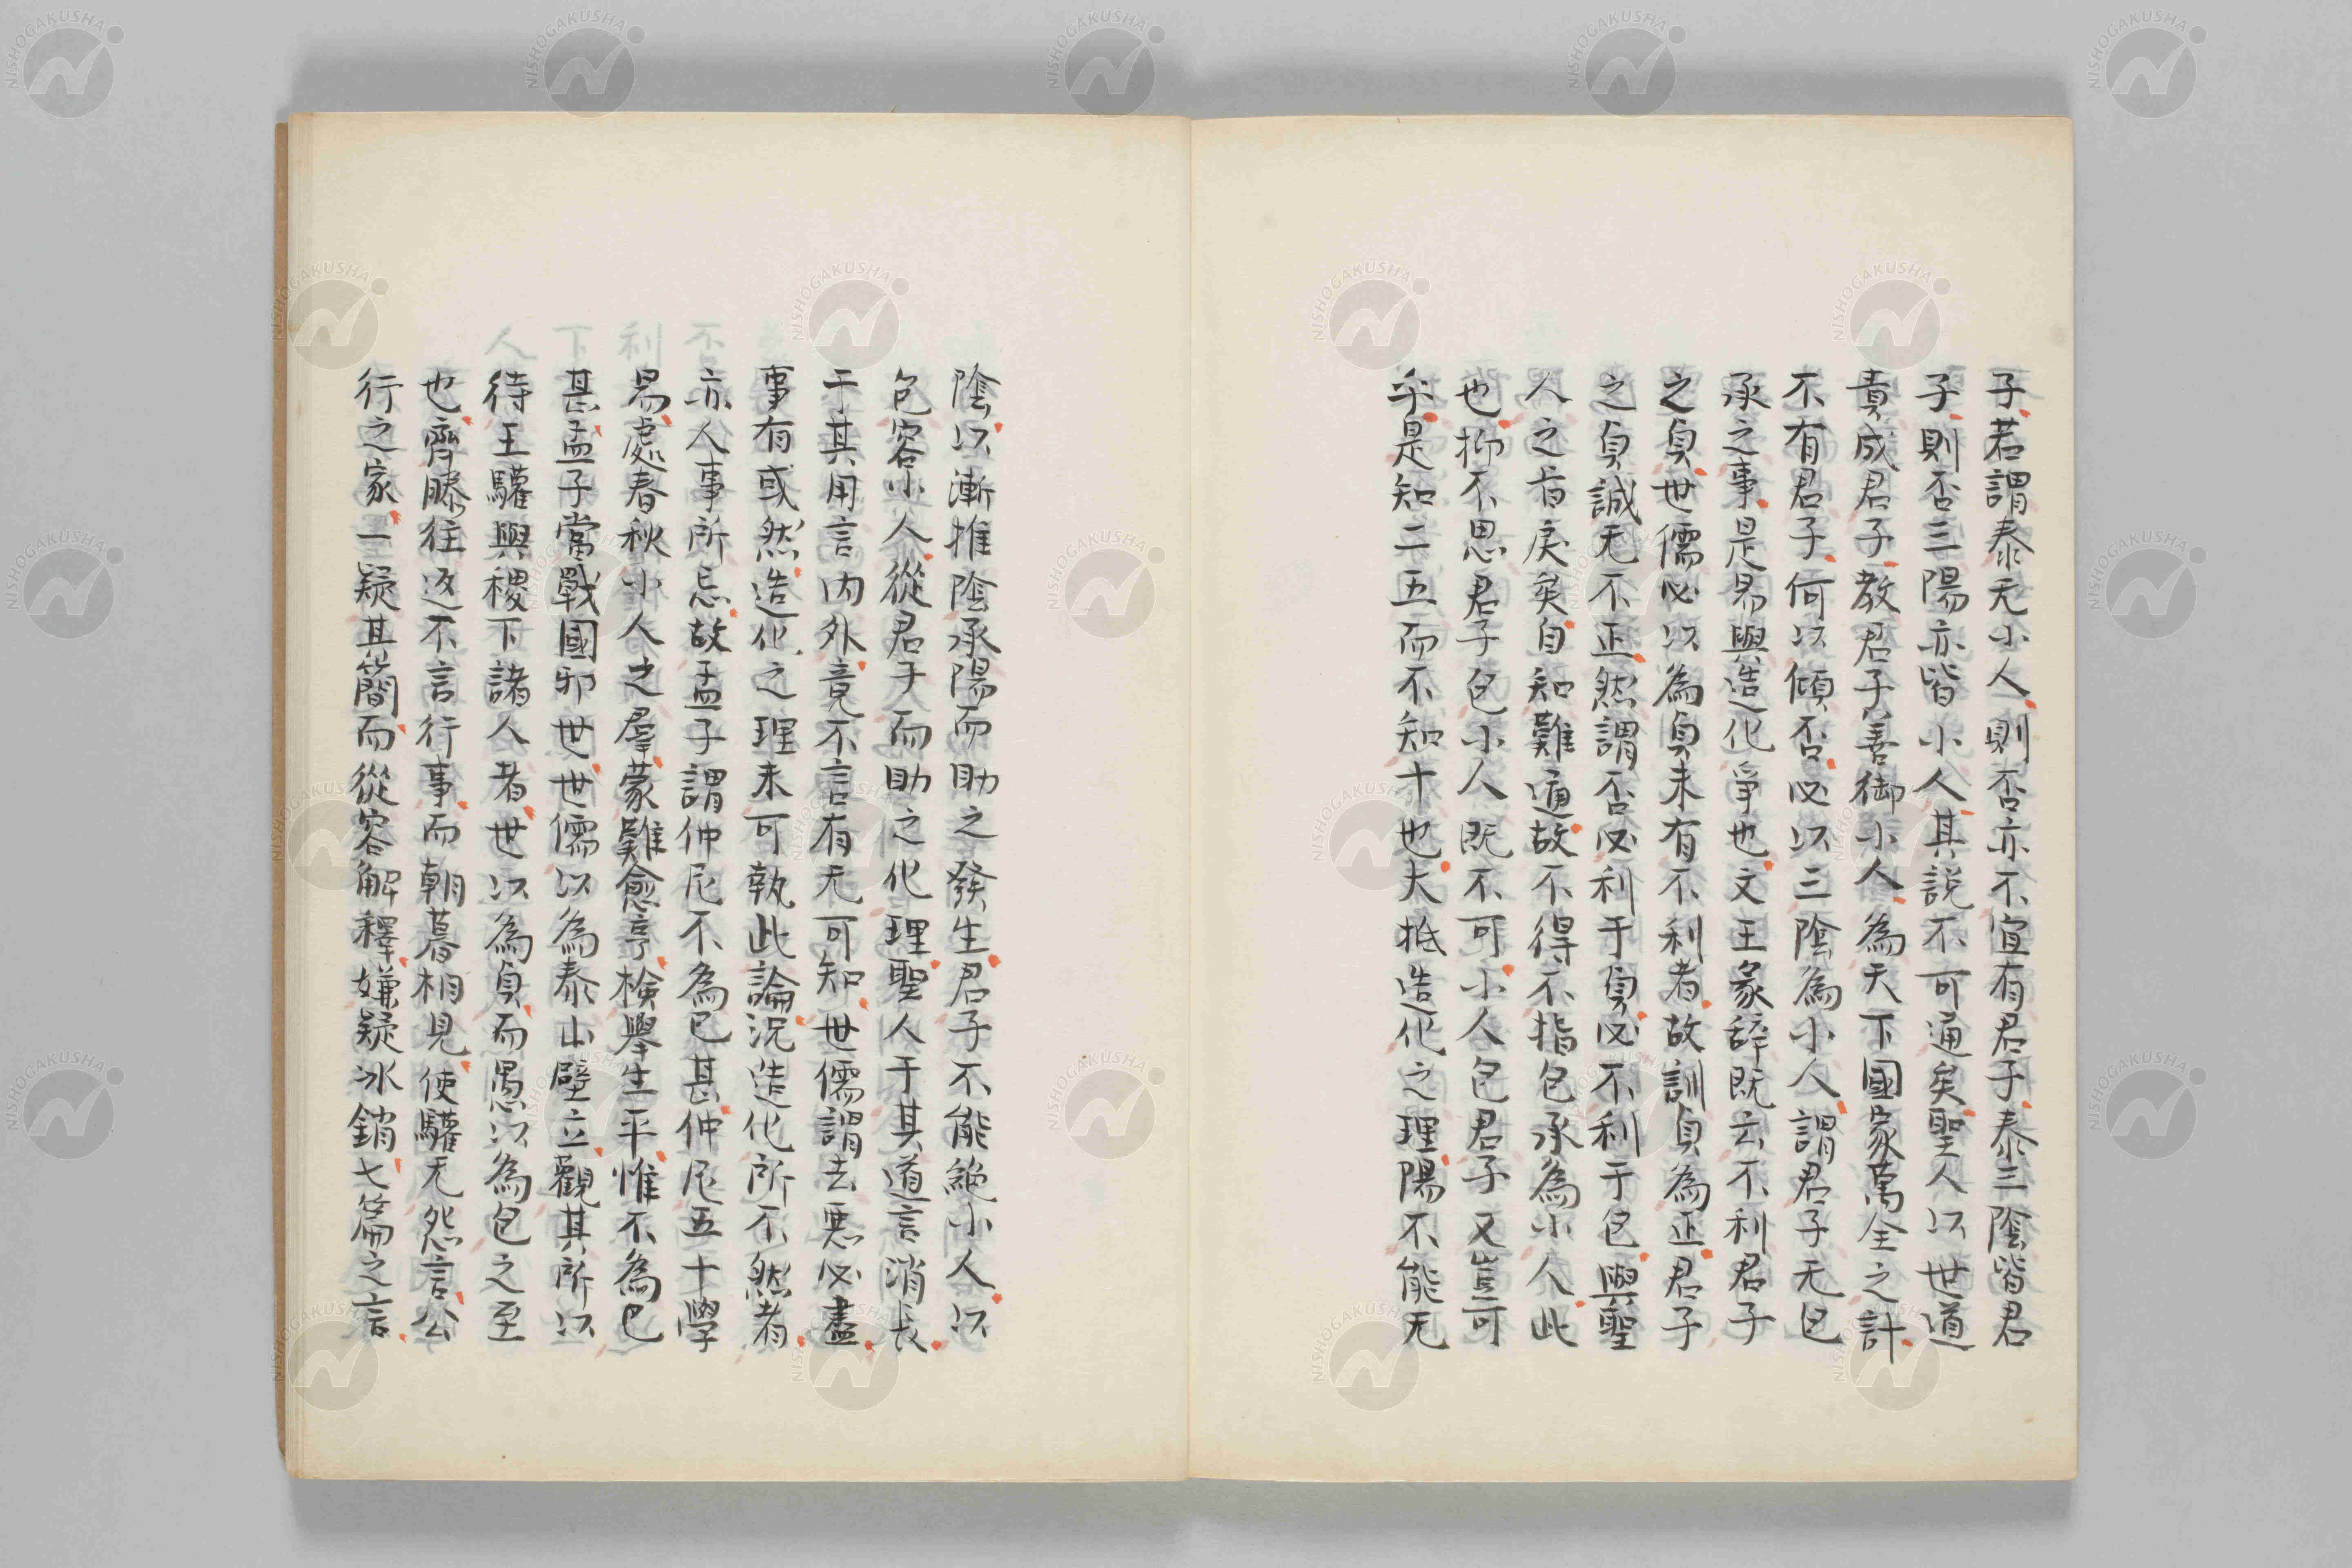 子若謂泰无小人則否亦不宜有君子泰三陰皆君
子則否三陽亦皆小人其説不可通矣聖人以世道
責成君子教君子善御小人為天下國家萬全之計
不有君子何以傾否必以三陰為小人謂君子无包
承之事是易與造化爭也文王彖辞既云不利君子
之貞世儒必以為貞未有不利者故訓貞為正君子
之貞誠无不正然謂否必利于貞必不利于包與聖
人之旨戾矣自知難通故不得不指包承為小人此
也抑不思君子包小人既不可小人包君子又豈可
乎是知二五而不知十也大抵造化之理陽不能无
陰以漸推陰承陽而助之發生君子不能絶小人以
包容小人從君子而助之化理聖人于其道言消長
于其用言内外竟不言有无可知世儒謂去惡必盡
事有或然造化之理未可執此論況造化所不然者
亦人事所忌故孟子謂仲尼不為已甚仲尼五十學
易處春秋小人之羣蒙難愈亨檢舉生平惟不為已
甚孟子當戰國邪世世儒以為泰山壁立觀其所以
待王驩與稷下諸人者世以為貞而愚以為包之至
也齊滕往返不言行事而朝暮相見使驩无怨言公
行之家一疑其簡而從容解釋嫌疑冰銷七篇之言
NISHOGAKUSHA